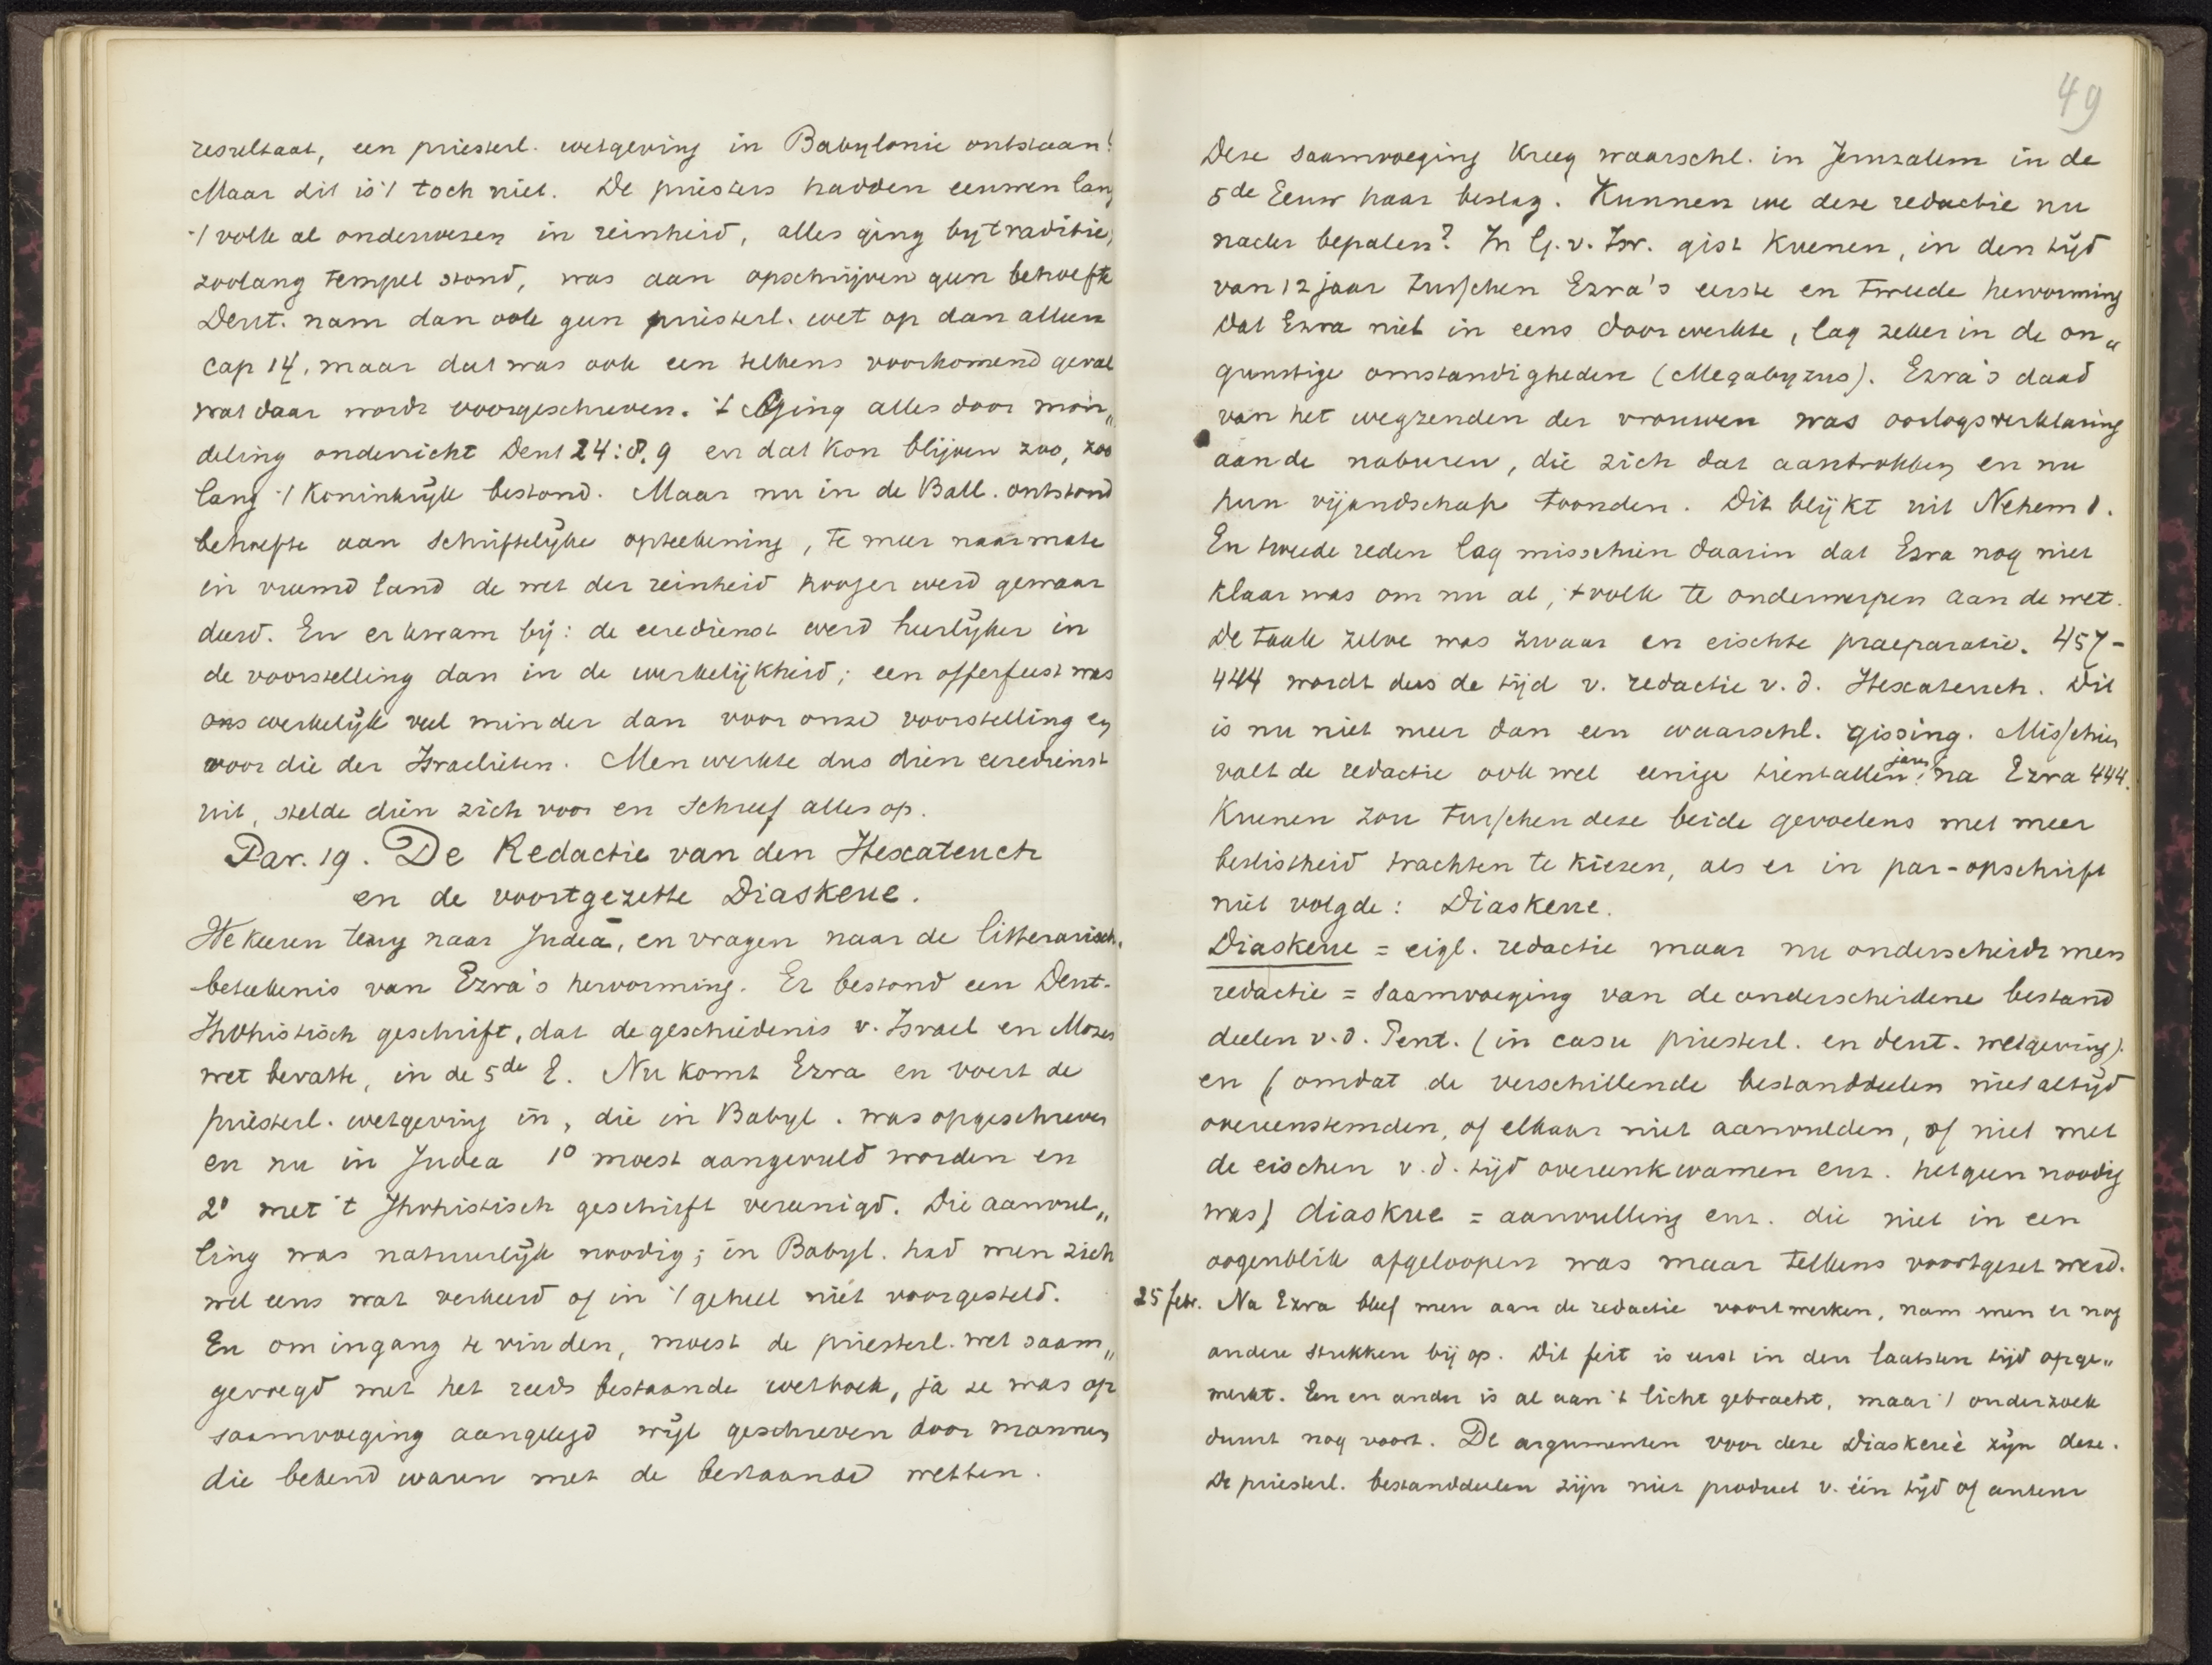 resultaat, een priesterl. wetgeving in Babylonie ontstaan!
Maar dit is 't toch niet. De priesters hadden eeuwen lang
't volk al onderwezen in reinheid, alles ging by traditie,
zoolang tempel stond, was aan opschrijven geen behoefte
Deut. nam dan ook geen priesterl. wet op dan alleen
cap 14, maar dat was ook een telkens voorkomend geval
wat daar wordt voorgeschreven. 't Ging alles door mon„
deling onderricht Deut 24:8,9 en dat kon blijven zoo, zoo
lang 't Koninkrijk bestond. Maar nu in de Ball. ontstond
behoefte aan schriftelyke opteekening, te meer naarmate
in vreemd land de wet der reinheid hooger werd gewaar
deerd. En er kwam bij: de eeredienst werd heerlyker in
de voorstelling dan in de werkelijkheid; een offerfeest was
ons werkelyk veel minder dan voor onze voorstelling en
voor die der Israelieten. Men werkte dus dien eeredienst
uit, stelde dien zich voor en schreef alles op.
Par. 19. De Redactie van den Hexateuch
en de voortgezette Diaskeue.
We keeren terug naar Judea, en vragen naar de litterarisch.
beteekenis van Ezra's hervorming. Er bestond een Deut-
Jhvhistisch geschrift, dat de geschiedenis v. Israel en Mozes
wet bevatte, in de 5de E. Nu komt Ezra en voert de
priesterl. wetgeving in, die in Babyl. was opgeschreven
en nu in Judea 1o moest aangevuld worden en
2o met 't Jhvhistisch geschrift vereenigd. Die aanvul„
ling was natuurlyk noodig; in Babyl. had men zich
wel eens wat verkeerd of in 't geheel niet voorgesteld.
En om ingang te vinden, moest de priesterl. wet saam„
gevoegd met het reeds bestaande wetboek, ja ze was op
saamvoeging aangelegd wijl geschreven door mannen
die bekend waren met de bestaande wetten.
49
Deze saamvoeging kreeg waarschl. in Jeruzalem in de
5de Eeuw haar beslag. Kunnen we deze redactie nu
nader bepalen? In G. v. Isr. gist Kuenen, in den tijd
van 12 jaar tusschen Ezra's eerste en tweede hervorming
Dat Ezra niet in eens doorwerkte, lag zeker in de on„
gunstige omstandigheden (Megabyzus). Ezra's daad
van het wegzenden der vrouwen was oorlogsverklaring
aan de naburen, die zich dat aantrokken en nu
hun vijandschap toonden. Dit blijkt uit Nehem 1.
En tweede reden lag misschien daarin dat Ezra nog niet
klaar was om nu al, 't volk te onderwerpen aan de wet.
De taak zelve was zwaar en eischte praeparatie. 457-
444 wordt dus de tijd v. redactie v. d. Hexateuch. Dit
is nu niet meer dan een waarschl. gissing. Misschien
valt de redactie ook wel eenige tientallen jaren na Ezra 444.
Kuenen zou tusschen deze beide gevoelens met meer
beslistheid trachten te kiezen, als er in par-opschrift
niet volgde: Diaskeue.
Diaskeue = eigl. redactie maar nu onderscheidt men
redactie = saamvoeging van de onderscheidene bestand
deelen v. d. Pent. (in casu priesterl. en deut. wetgeving).
en (omdat de verschillende bestanddeelen niet altyd
overeenstemden, of elkaar niet aanvulden, of niet met
de eischen v. d. tijd overeenkwamen enz. hetgeen noodig
was) diaskue = aanvulling enz. die niet in een
oogenblik afgeloopen was maar telkens voortgezet werd.
25 febr. Na Ezra bleef men aan de redactie voortwerken, nam men er nog
andere stukken bij op. Dit feit is eerst in den laatsten tijd opge„
merkt. Een en ander is al aan 't licht gebracht, maar 't onderzoek
duurt nog voort. De argumenten voor deze Diaskeue zyn deze.
De priesterl. bestanddeelen zijn niet product v. één tijd of auteur